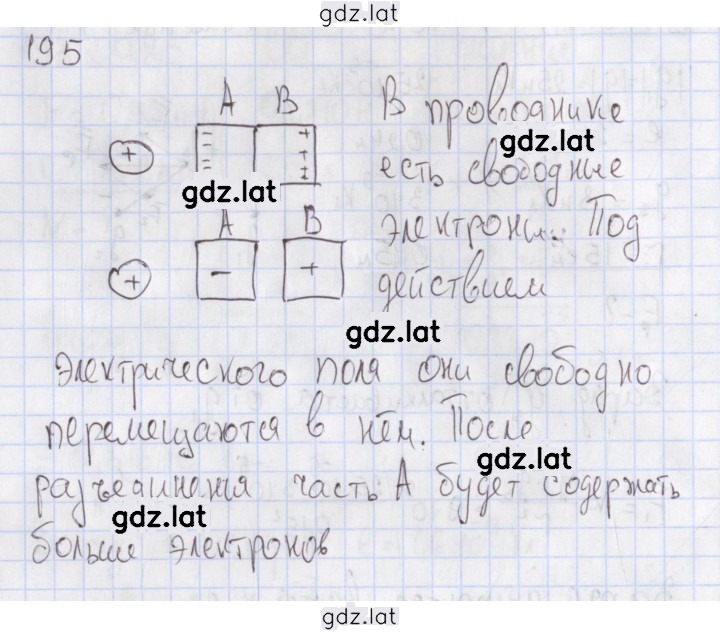 gdz.lat
195
A B
В проводнике
gdz.lat
+ - - - - + + +
есть свободные
gdz.lat
A B
электроны. Под
+ - +
действием
gdz.lat
электрического поля они свободно
перемещаются в нём. После
gdz.lat
разъединения часть А будет содержать
gdz.lat
больше электронов
gdz.lat